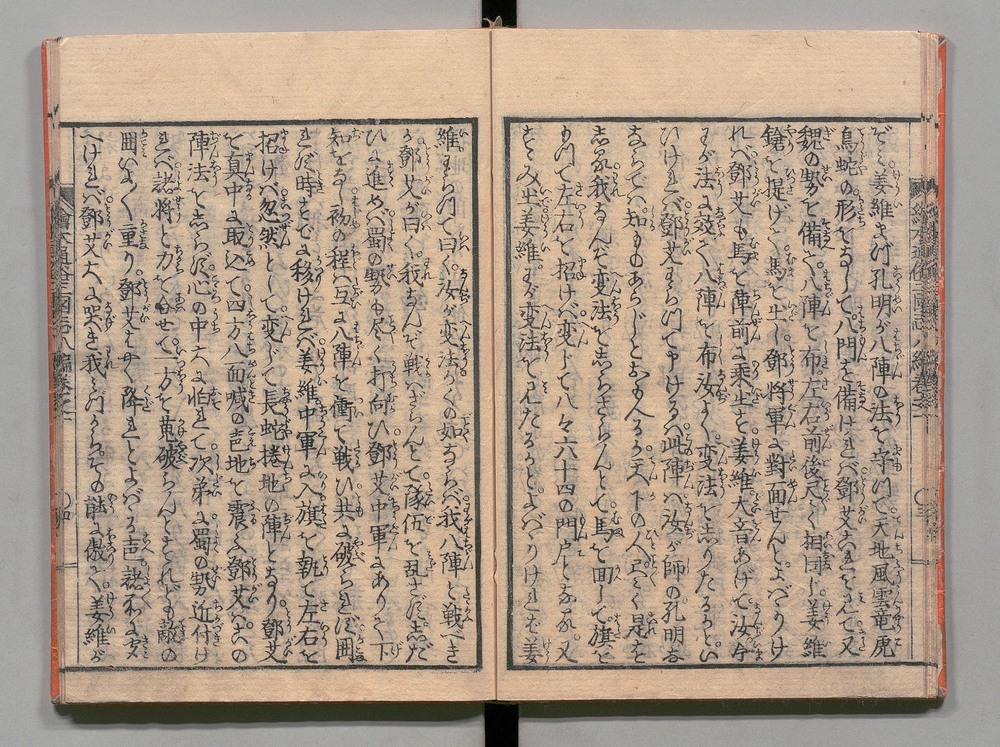 ぞく姜維さげ孔明が八陣の法を守門て天地風雲竜虎
鳥蛇の形をなして八門を備けれバ鄧艾これをみて又
魏の勢を備て八陣を布左右前後尽く相同じ姜維
鎗を提げて馬を出し鄧将軍に対面せんとよバりけ
れべ鄧艾も馬を陣前に乗出を姜維大音あげて汝今
まが法に效て八陣を布汝よく変法をしりたるかとい
ひけれバ鄧艾わらつて申けるハ此陣ハ汝が師の孔明な
らでハ知ものあらじとおもへるか天下の人尽く是を
しる我なんぞ変法をしらざらんとて馬を回して旗を
もつて左右を招けバ変じて八々六十四の門戸となる又
すゝみ出姜維わが変法をみたるかとよバりけれバ姜
維わらつて曰く汝が変法かくの如ならバ我八陣と戦べき
か鄧艾が曰く我なんぞ戦ハざらんとて隊伍を乱さず志だ
ひに進めバ蜀の勢も尽く打向ひ鄧艾中軍にありて下
知をなし初の程ハ互に八陣を衝て戦ひ共に破られず囲
れず時すでに移けれバ姜維中軍に入旗を執て左右を
招けバ忽然として変じて長蛇捲地の陣となり鄧艾
を真中に取込て四方八面喊の声地を震ふ鄧艾この
陣法をしらず心の中大に怕れて次第に蜀の勢近付け
れバ諸将と力を合せて一方を蒐破らんとすれども敵の
囲いよく重り鄧艾はやく降れとよバる声諸わに
へけれバ鄧艾大に哭き我みづからその謀に傲て姜維が
繪本通俗三國志八編巻之